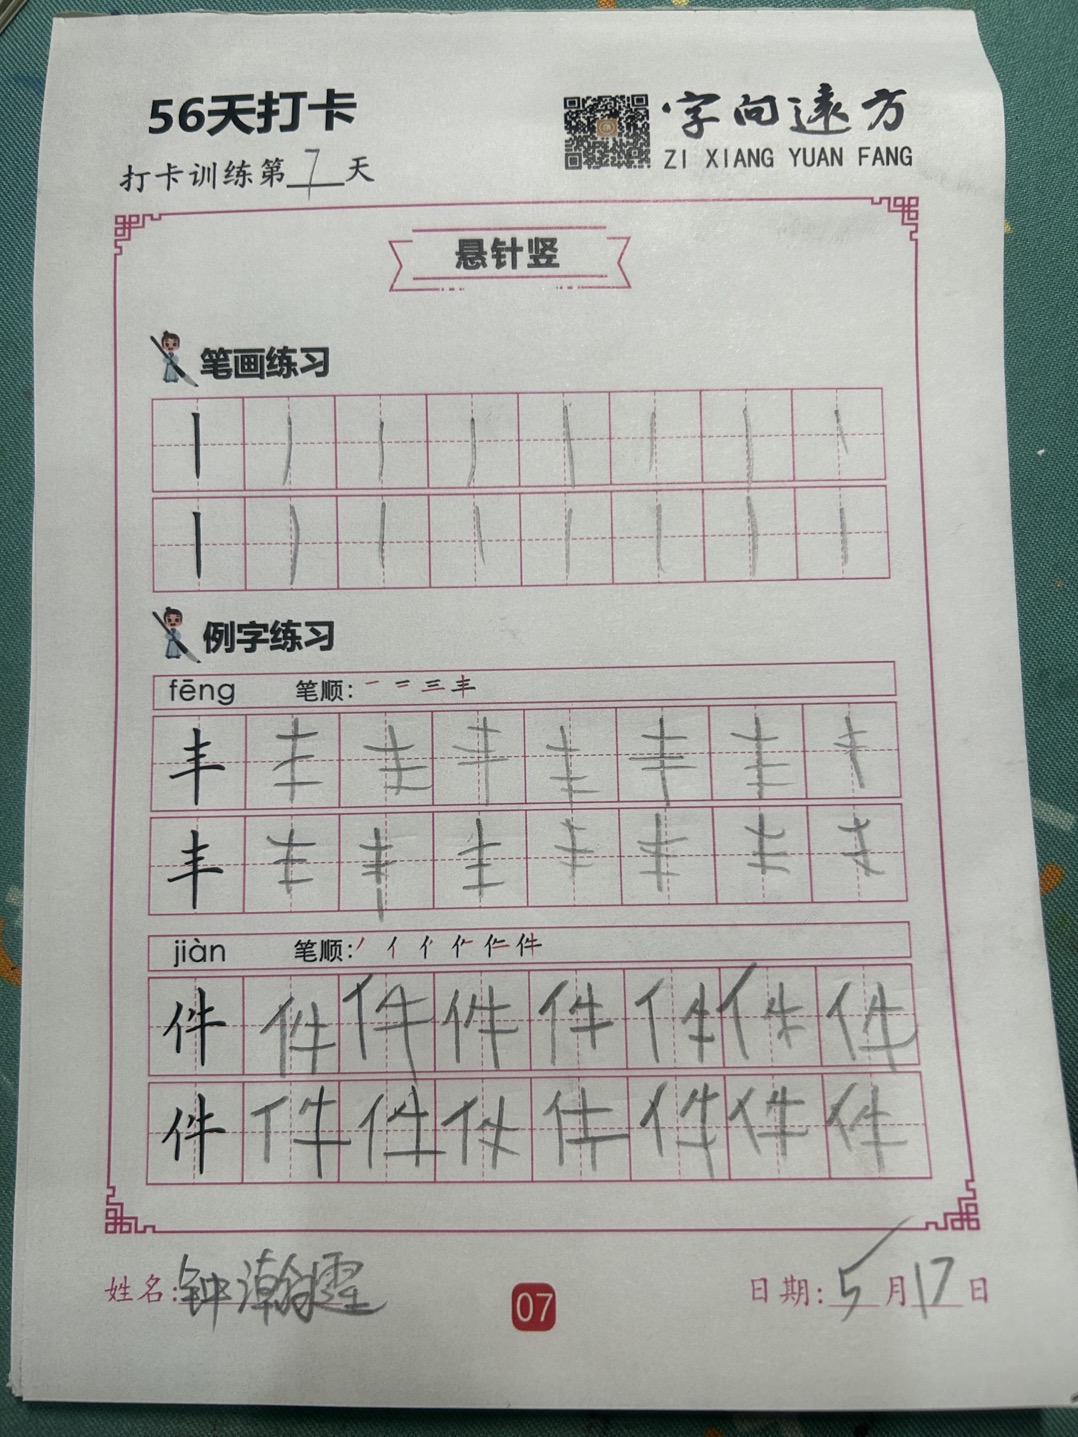 56天打卡
字向远方
ZI XIANG YUAN FANG
打卡训练第7天
悬针竖
笔画练习
丨丨丨丨丨丨丨丨
丨丨丨丨丨丨丨丨
例字练习
fēng 笔顺：一 二 三 丰
丰丰丰丰丰丰丰丰
丰丰丰丰丰丰丰丰
jiàn 笔顺：丿 亻 亻 亻 仁 件
件件件件件件件件
件件件件件件件件
姓名：钟瀚霆
07
日期：5月17日